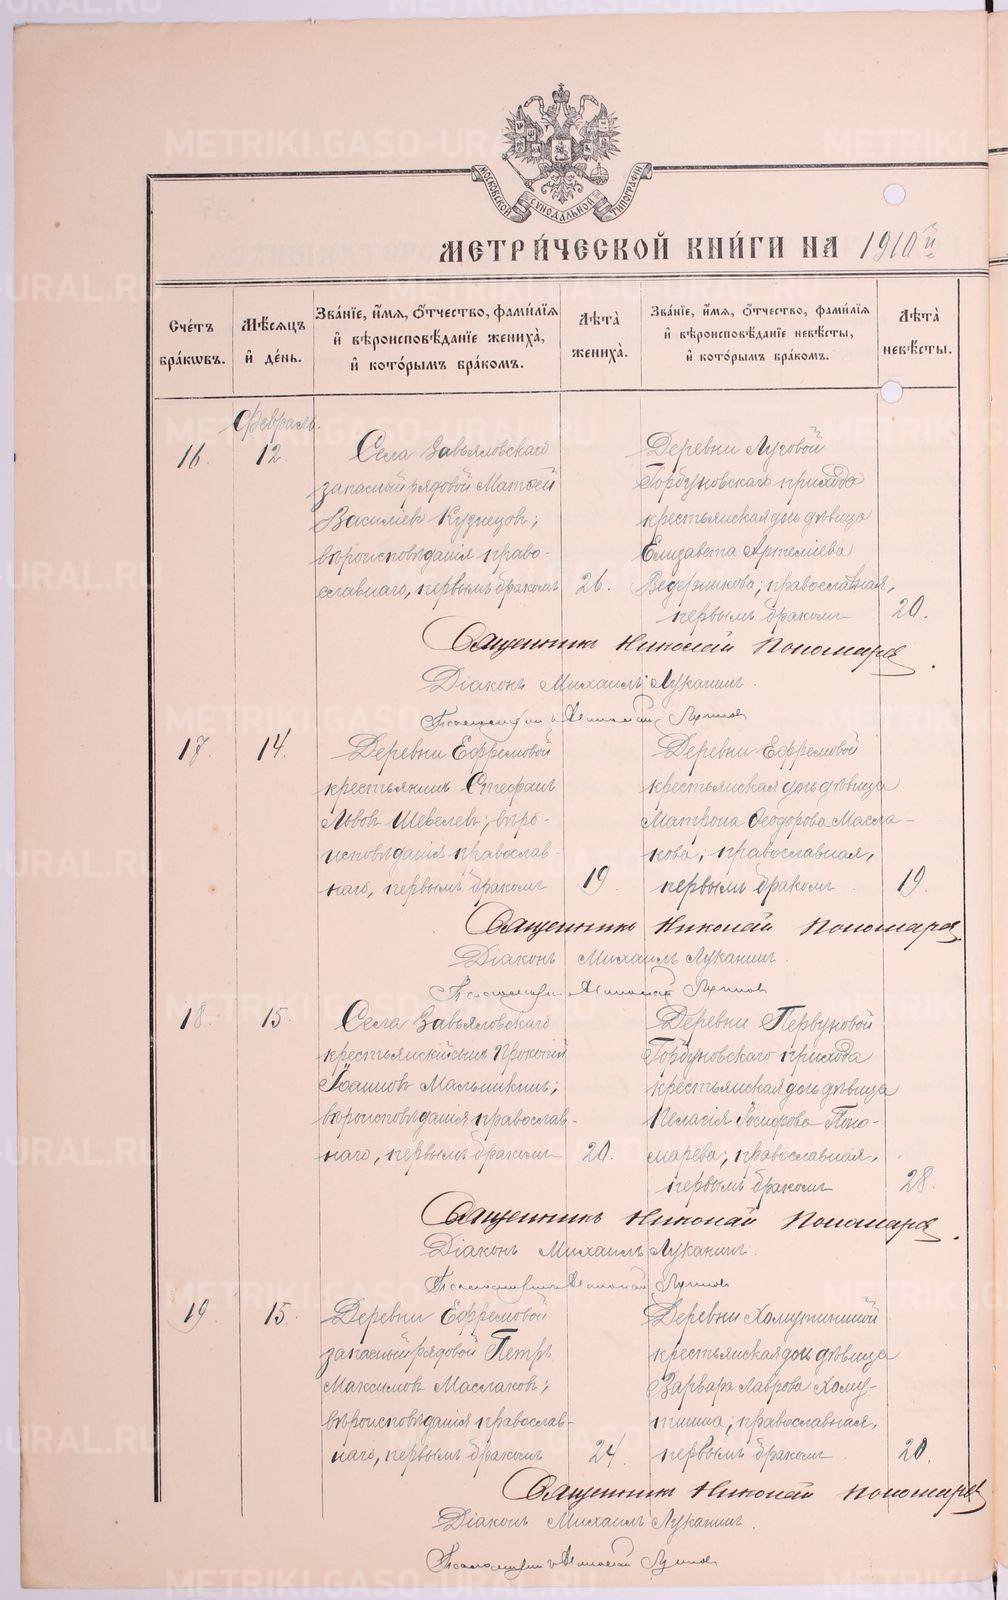 МОСКОВСКОЙ СѴНОДАЛЬНОЙ ТИПОГРАФІИ
МЕТРИ́ЧЕСКОЙ КНИ́ГИ НА 1910й
Сче́тъ бра́кωвъ.
Мѣ́сяцъ и҆ де́нь.
Зва́нїе, и҆́мя, ѻ҆́тчество, фами́лїя
и҆ вѣроисповѣ́данїе жениха̀,
и҆ кото́рымъ бра́комъ.
Лѣта̀ жениха̀.
Зва́нїе, и҆́мя, ѻ҆́тчество, фами́лїя
и҆ вѣроисповѣ́данїе невѣ́сты,
и҆ кото́рымъ бра́комъ.
Лѣта̀ невѣ́сты.
Февраль.
16. 12.
Села Завьяловскаго
запасный рядовой Матѳей
Василіевъ Кузнецовъ;
вѣроисповѣданія право-
славнаго, первымъ бракомъ
26.
Деревни Луговой
Горбуновскаго прихода
крестьянская дочь дѣвица
Елизавета Артеміева
Ведерникова; православная,
первымъ бракомъ
20.
Священникъ Николай Пономарев
Діаконъ Михаилъ Луканинъ.
17. 14.
Деревни Ефремовой
крестьянинъ Стефанъ
Львовъ Шевелевъ; вѣро-
исповѣданія православ-
наго, первымъ бракомъ
19.
Деревни Ефремовой
крестьянская дочь дѣвица
Матрона Ѳеодорова Масла-
кова; православная,
первымъ бракомъ.
19.
Священникъ Николай Пономарев
Діаконъ Михаилъ Луканинъ.
18. 15.
Села Завьяловскаго
крестьянскій сынъ Прокопій
Іоанновъ Мальчикинъ;
вѣроисповѣданія православ-
наго, первымъ бракомъ
20.
Деревни Первуновой
Горбуновскаго прихода
крестьянская дочь дѣвица
Пелагія Поно-
марева; православная,
первымъ бракомъ
28.
Священникъ Николай Пономарев
Діаконъ Михаилъ Луканинъ.
19. 15.
Деревни Ефремовой
запасный рядовой Петръ
Максимовъ Маслаковъ;
вѣроисповѣданія православ-
наго, первымъ бракомъ
24.
Деревни Хомутининой
крестьянская дочь дѣвица
Варвара Лаврова Хому-
тинина; православная,
первымъ бракомъ.
20.
Священникъ Николай Пономарев
Діаконъ Михаилъ Луканинъ.
METRIKI.GASO-URAL.RU